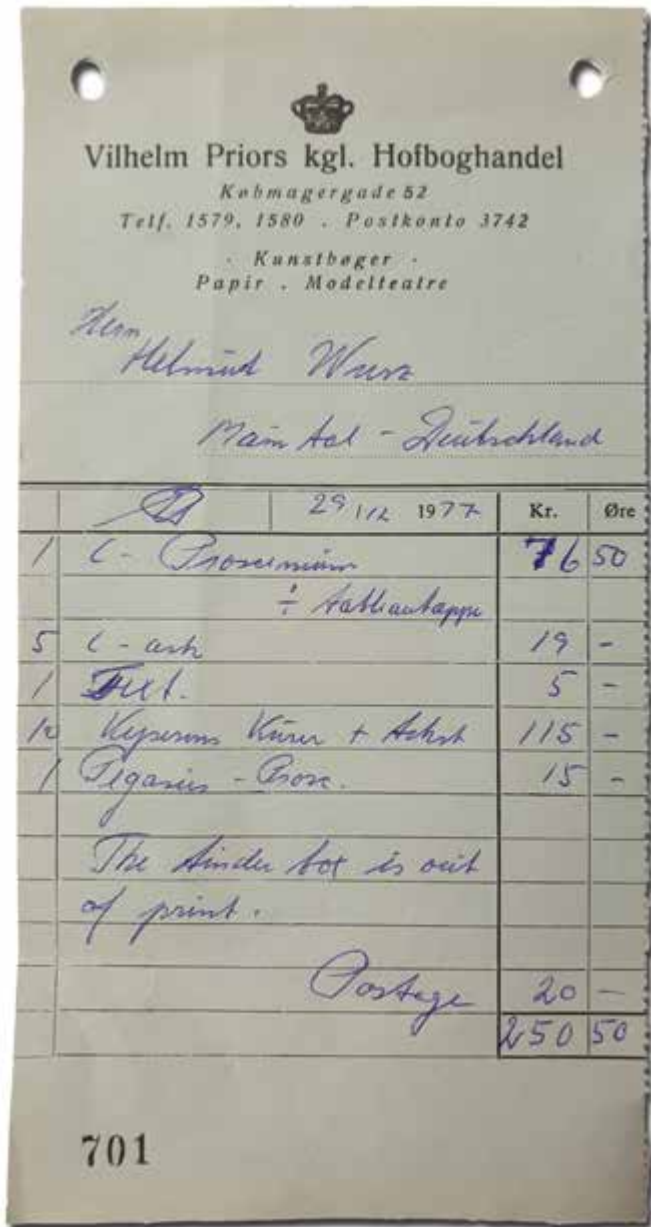 Vilhelm Priors kgl. Hofboghandel
Købmagergade 52
Telf. 1579, 1580 . Postkonto 3742
. Kunstbøger .
Papir . Modelteatre
Herrn
Helmut Wurz
Maintal - Deutschland
29/12 1977 Kr. Øre
1 C - Proscenium 76 50
÷ tableautæppe
5 C - ark 19 -
1 5 -
Kejserens + tekst 115 -
1 Pegasus - Prosc. 15 -
The tinder box is out
of print.
Postage 20 -
250 50
701